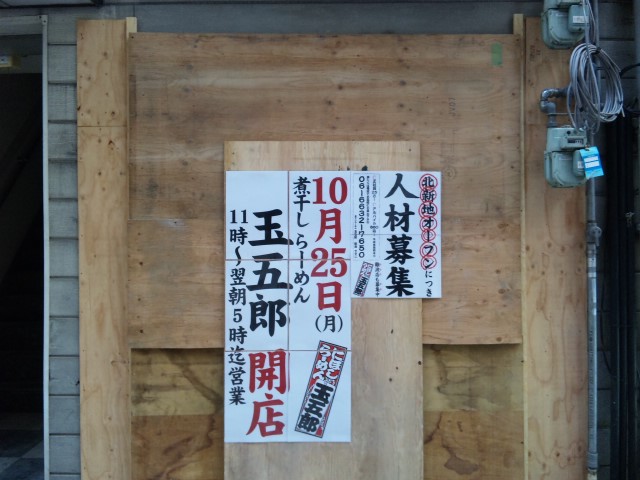 北新地オープンにつき
人材募集
06-6632-7650
10月25日(月)
煮干しらーめん
玉五郎 開店
11時〜翌朝5時迄営業
にぼし
らーめん
玉五郎